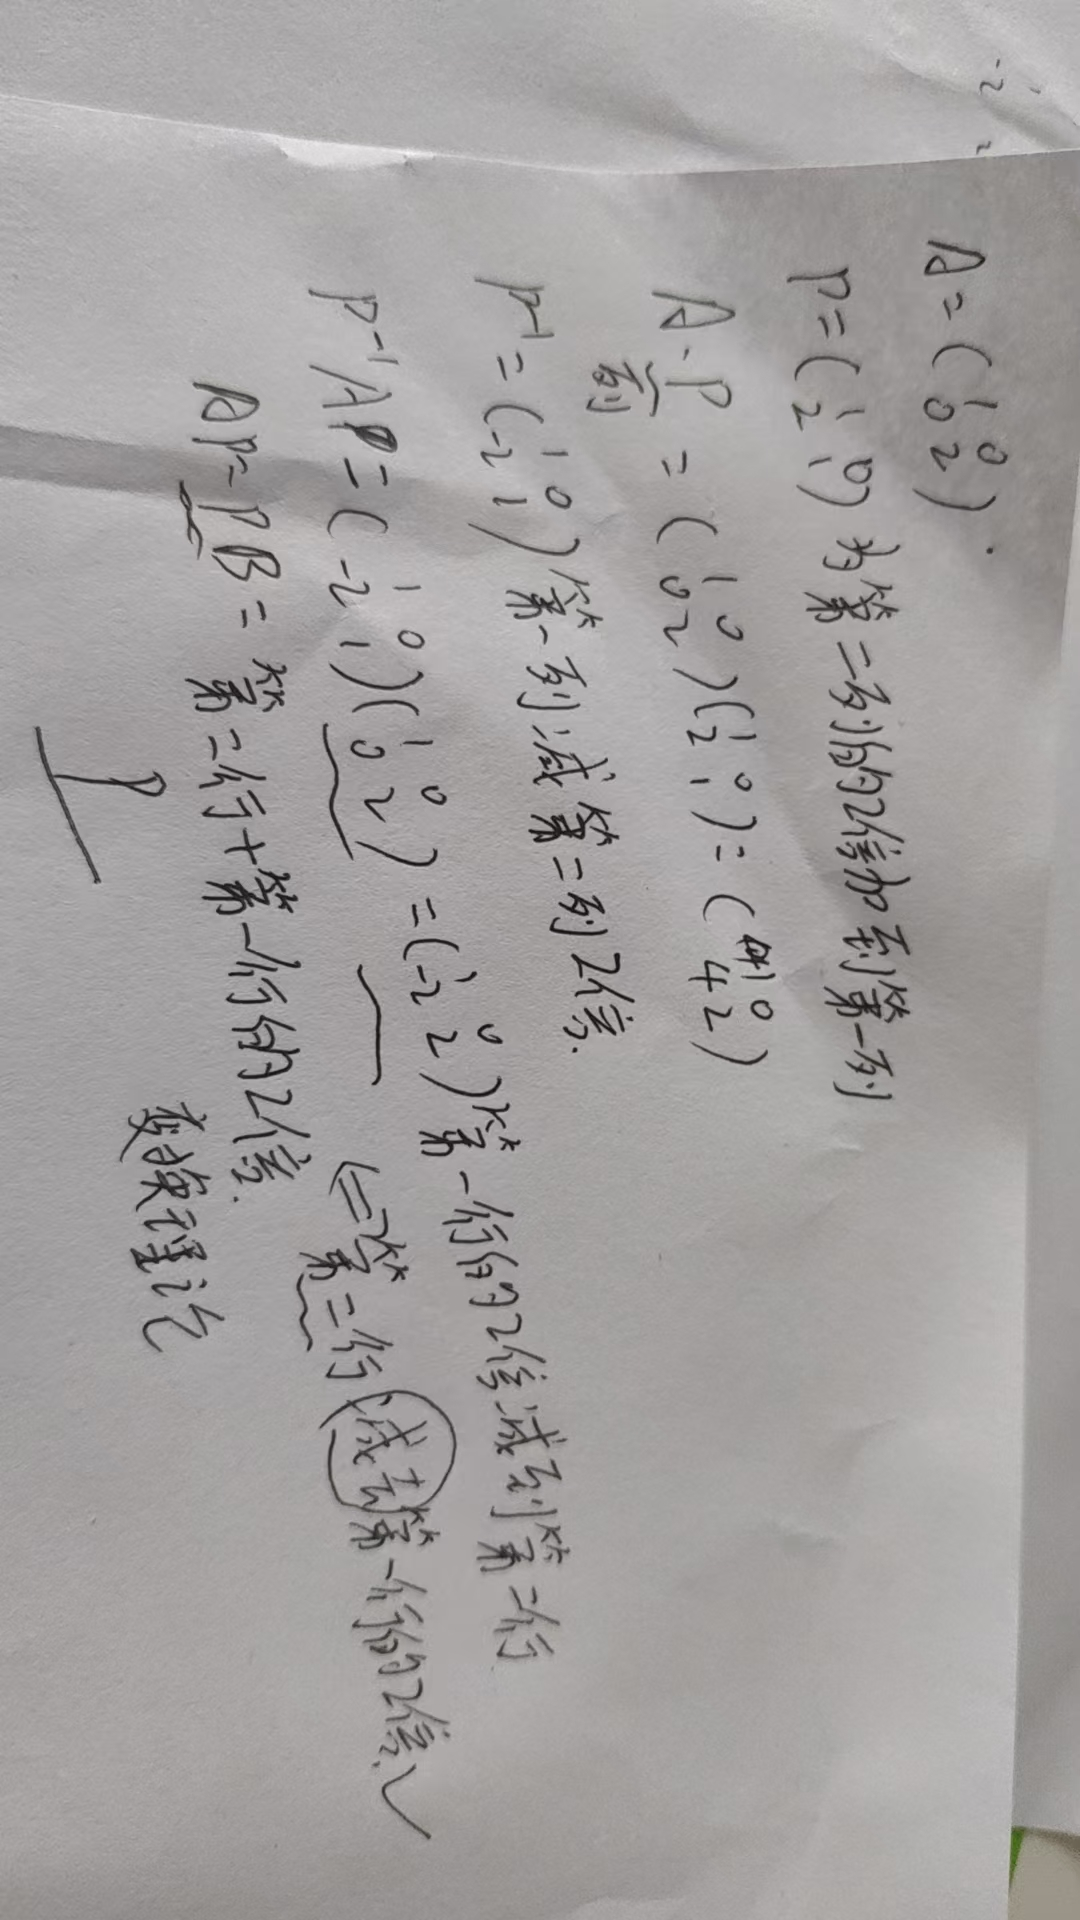 -2
A = ( 1 0
0 2 ) .
P = ( 1 0
2 1 ) 为第二列的2倍加到第一列
A · P = ( 1 0
0 2 ) ( 1 0
2 1 ) = ( 1 0
4 2 )
列
P⁻¹ = ( 1 0
-2 1 ) 第一列减第二列2倍.
P⁻¹AP = ( 1 0
-2 1 ) ( 1 0
0 2 ) = ( 1 0
-2 2 ) 第一行的2倍减到第二行
⇐ 第二行减去第一行的2倍. ✓
AP = PB = 第二行+第一行的2倍.
变换理论
P